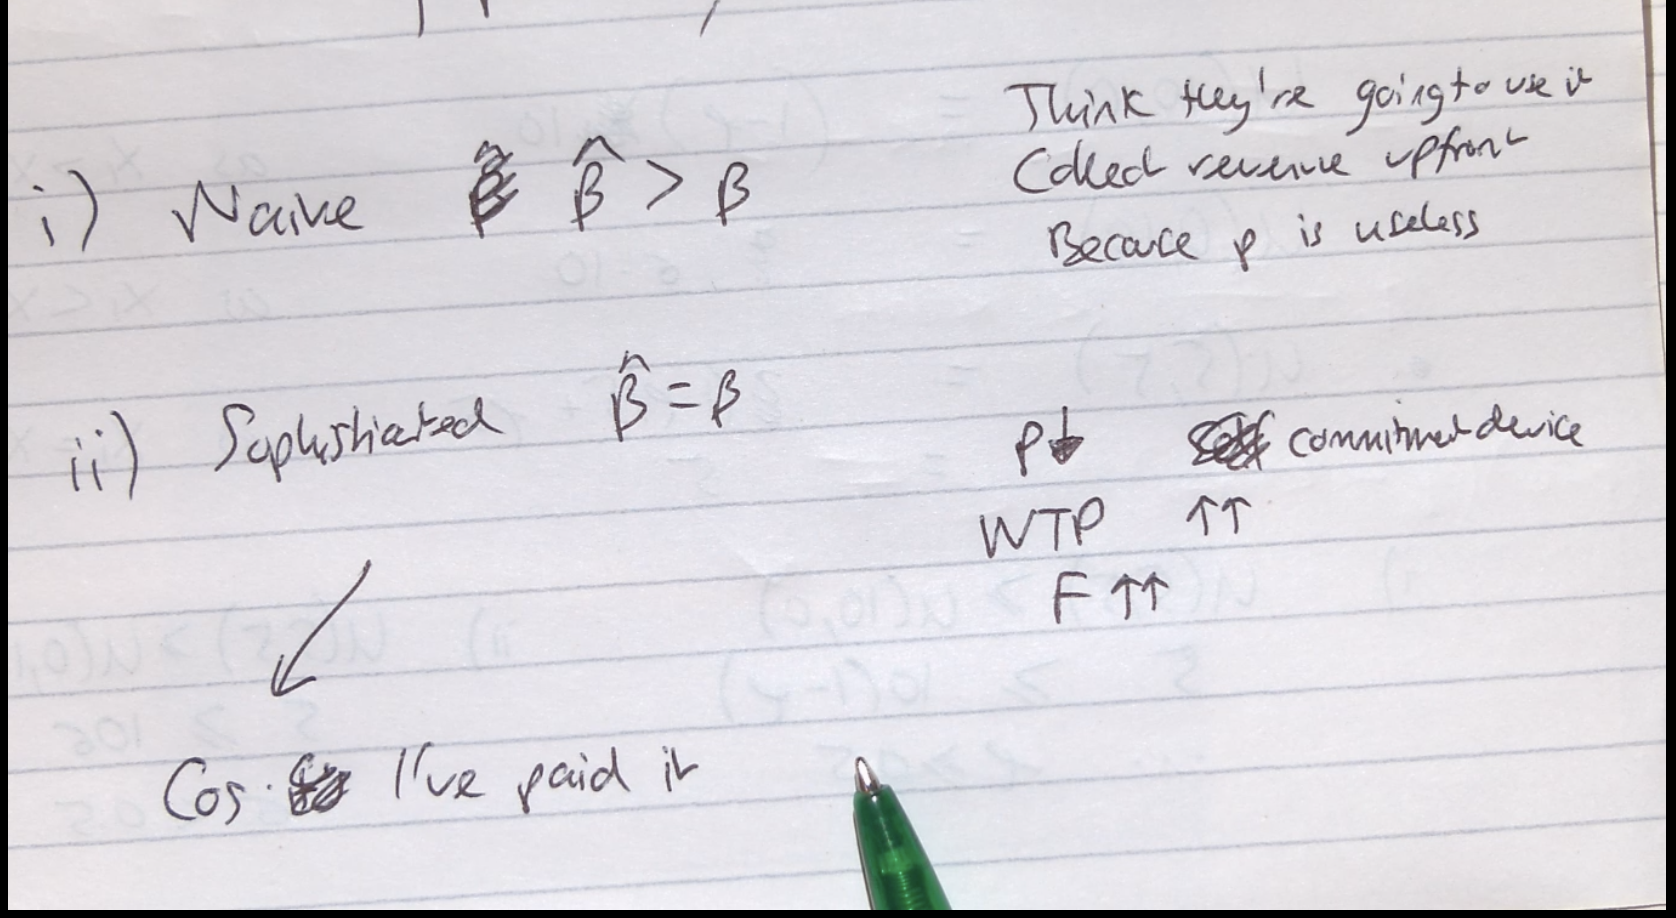 Think they're going to use it
Collect revenue upfront
i) Naive β̂ > β
Because p is useless
ii) Sophisticated β̂ = β
p↓ commitment device
WTP ↑↑
F ↑↑
Cos I've paid it